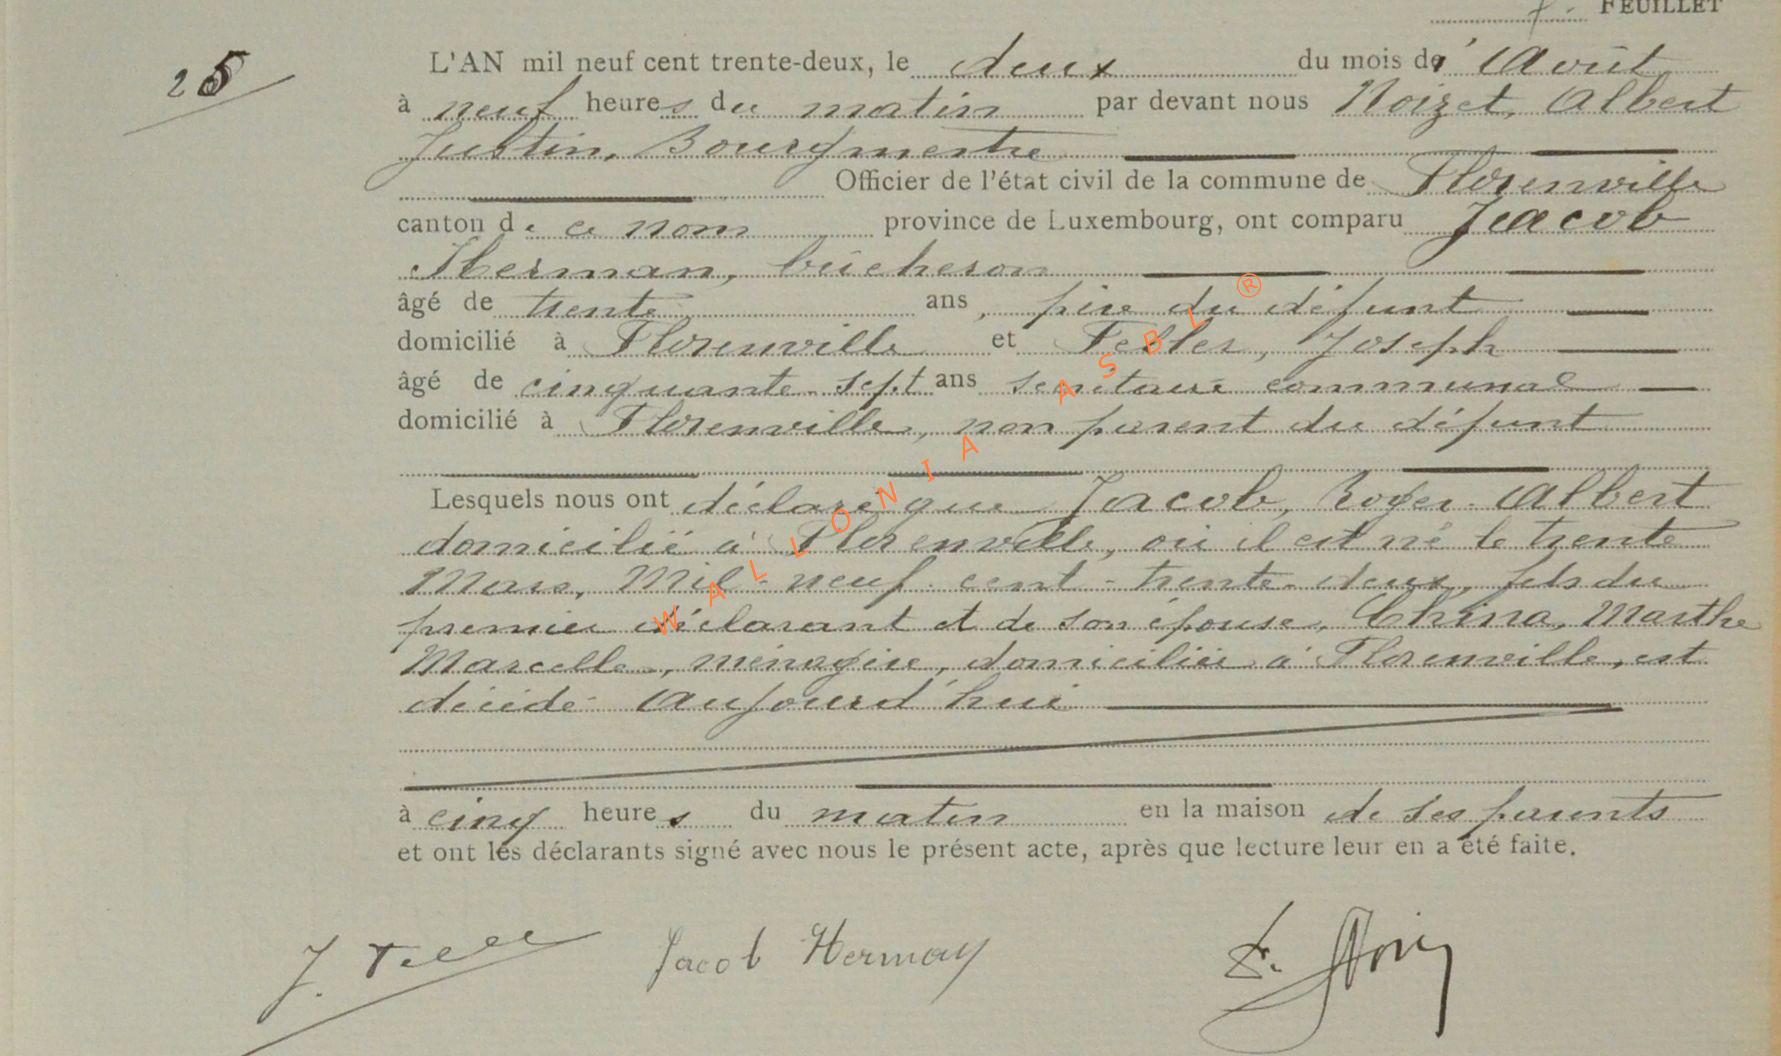 FEUILLET
25
L'AN mil neuf cent trente-deux, le deux du mois d' Août
à neuf heures du matin par devant nous Noizet, Albert
Justin, Bourgmestre
Officier de l'état civil de la commune de Florenville
canton de ce nom province de Luxembourg, ont comparu Jacob
Herman, bûcheron
âgé de trente ans, père du défunt
domicilié à Florenville et Feller, Joseph
âgé de cinquante-sept ans secrétaire communal
domicilié à Florenville, non parent du défunt
Lesquels nous ont déclaré que Jacob, Roger-Albert
domicilié à Florenville, où il est né le trente
Mars, Mil-neuf-cent-trente-deux, fils du
premier déclarant et de son épouse, China, Marthe
Marcelle, ménagère, domiciliée à Florenville, est
décédé aujourd'hui
à cinq heures du matin en la maison de ses parents
et ont les déclarants signé avec nous le présent acte, après que lecture leur en a été faite.
J. Jacob Herman
WALLONIA ASBL ®